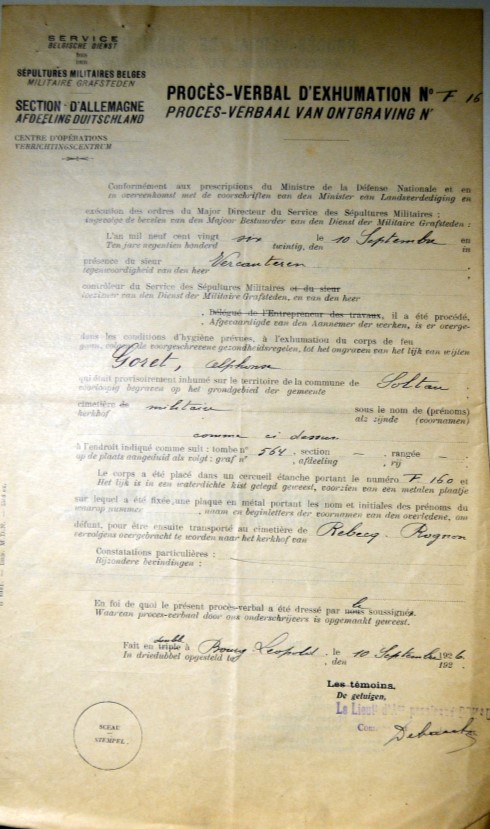 SERVICE
BELGISCHE DIENST
DES
DER
SÉPULTURES MILITAIRES BELGES
MILITAIRE GRAFSTEDEN
SECTION D'ALLEMAGNE
AFDEELING DUITSCHLAND
CENTRE D'OPÉRATIONS
VERRICHTINGSCENTRUM
PROCÈS-VERBAL D'EXHUMATION N° F 16
PROCES-VERBAAL VAN ONTGRAVING N°
Conformément aux prescriptions du Ministre de la Défense Nationale et en
In overeenkomst met de voorschriften van den Minister van Landsverdediging en
exécution des ordres du Major Directeur du Service des Sépultures Militaires :
ingevolge de bevelen van den Majoor Bestuurder van den Dienst der Militaire Grafsteden :
L'an mil neuf cent vingt six le 10 Septembre en
Ten jare negentien honderd twintig, den in
présence du sieur Vercauteren
tegenwoordigheid van den heer
contrôleur du Service des Sépultures Militaires et du sieur
toeziener van den Dienst der Militaire Grafsteden, en van den heer
, Délégué de l'Entrepreneur des travaux, il a été procédé,
, Afgevaardigde van den Aannemer der werken, is er overge-
dans les conditions d'hygiène prévues, à l'exhumation du corps de feu
gaan, voorgeschrevene gezondheidsregelen, tot het ongraven van het lijk van wijlen
Goret, Alphonse
qui était provisoirement inhumé sur le territoire de la commune de Soltau
voorloopig begraven op het grondgebied der gemeente
cimetière de militaire sous le nom de (prénoms)
kerkhof als zijnde (voornamen)
comme ci dessus
à l'endroit indiqué comme suit : tombe n° 564, section — , rangée —
op de plaats aangeduid als volgt : graf n° , afdeeling , rij
Le corps a été placé dans un cercueil étanche portant le numéro F 160 et
Het lijk is in een waterdichte kist gelegd geweest, voorzien van een metalen plaatje
sur lequel a été fixée, une plaque en métal portant les nom et initiales des prénoms du
waarop nummer , naam en beginletters der voornamen van den overledene, om
défunt, pour être ensuite transporté au cimetière de Rebecq-Rognon
vervolgens overgebracht te worden naar het kerkhof van
Constatations particulières :
Bijzondere bevindingen :
En foi de quoi le présent procès-verbal a été dressé par nous le soussigné
Waarvan proces-verbaal door ons onderschrijvers is opgemaakt geweest.
double
Fait en triple à Bourg Léopold, le 10 Septembre 1926
In driedubbel opgesteld te , den 192
Les témoins,
De getuigen,
Le Lieut
Com.
SCEAU
STEMPEL